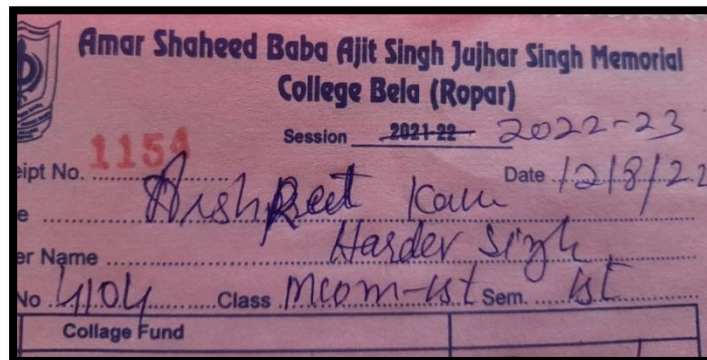 Amar Shaheed Baba Ajit Singh Jujhar Singh Memorial
College Bela (Ropar)
Session 2021-22 2022-23
eipt No. 1154 Date 12/8/22
e Arshpreet Kaur
er Name Hardev Singh
No 4104 Class Mcom-1st Sem. 1st
Collage Fund